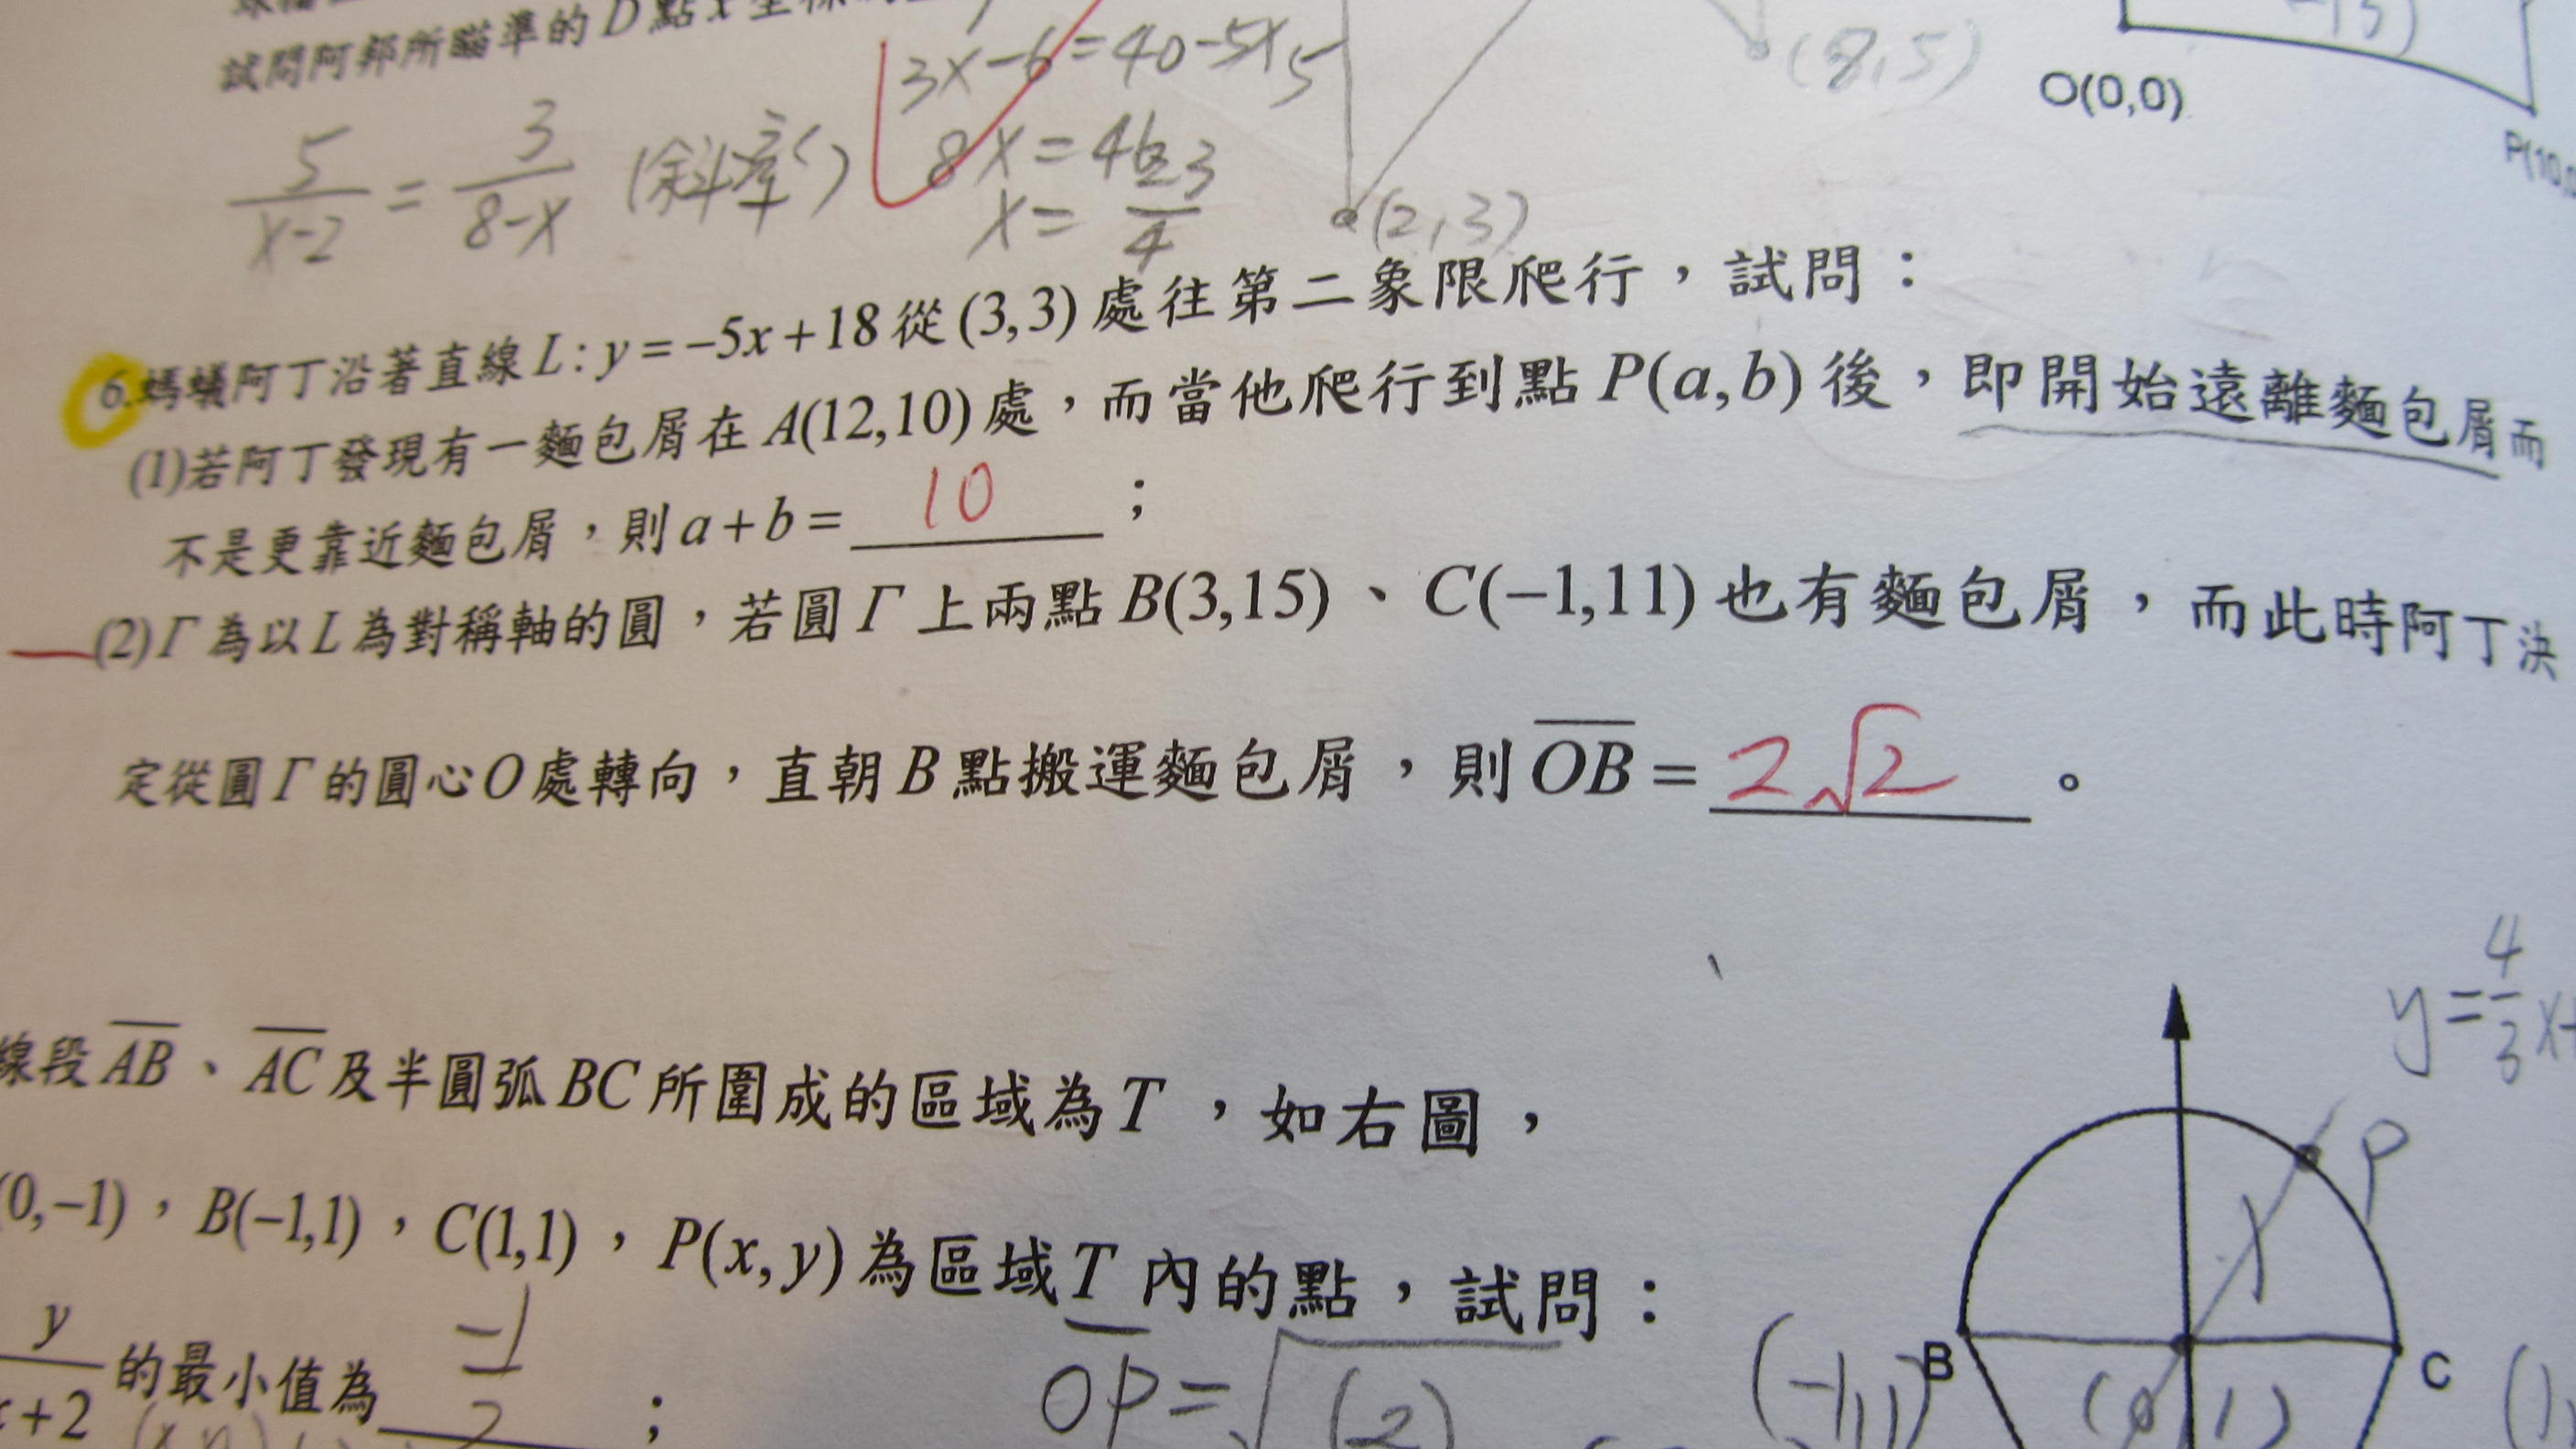 試問阿邦所瞄準的D點x坐標
3x-6=40-5x
5/(x-2) = 3/(8-x) (斜率)
8x=46
x= 23/4
5
(2,3)
(8,5)
O(0,0)
6.螞蟻阿丁沿著直線L:y=-5x+18從(3,3)處往第二象限爬行，試問：
(1)若阿丁發現有一麵包屑在A(12,10)處，而當他爬行到點P(a,b)後，即開始遠離麵包屑而
不是更靠近麵包屑，則a+b= 10 ；
(2)Γ為以L為對稱軸的圓，若圓Γ上兩點B(3,15)、C(-1,11)也有麵包屑，而此時阿丁決
定從圓Γ的圓心O處轉向，直朝B點搬運麵包屑，則OB= 2√2 。
線段AB、AC及半圓弧BC所圍成的區域為T，如右圖，
(0,-1)，B(-1,1)，C(1,1)，P(x,y)為區域T內的點，試問：
的最小值為 -1/2 ；
OP=√(2)
y=4/3x
P
B
C
(-1,1)
(0,1)